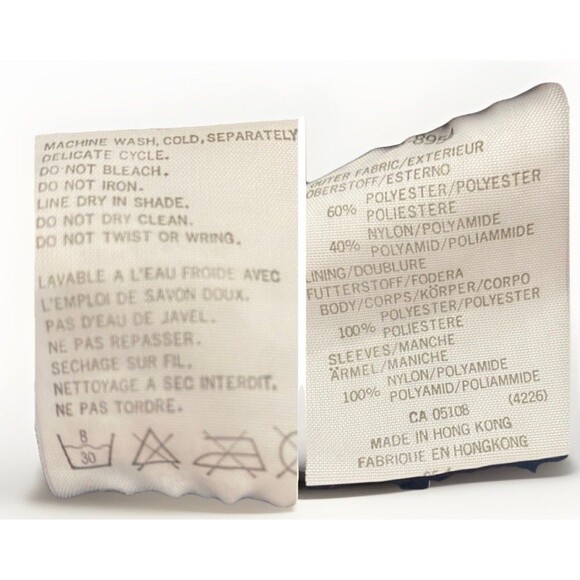 MACHINE WASH, COLD, SEPARATELY
DELICATE CYCLE.
DO NOT BLEACH.
DO NOT IRON.
LINE DRY IN SHADE.
DO NOT DRY CLEAN.
DO NOT TWIST OR WRING.
LAVABLE A L'EAU FROIDE AVEC
L'EMPLOI DE SAVON DOUX.
PAS D'EAU DE JAVEL.
NE PAS REPASSER.
SECHAGE SUR FIL.
NETTOYAGE A SEC INTERDIT.
NE PAS TORDRE.
8
30
OUTER FABRIC/EXTERIEUR
OBERSTOFF/ESTERNO
60% POLYESTER/POLYESTER
POLIESTERE
40% NYLON/POLYAMIDE
POLYAMID/POLIAMMIDE
LINING/DOUBLURE
FUTTERSTOFF/FODERA
BODY/CORPS/KÖRPER/CORPO
100% POLYESTER/POLYESTER
POLIESTERE
SLEEVES/MANCHE
ÄRMEL/MANICHE
100% NYLON/POLYAMIDE
POLYAMID/POLIAMMIDE
CA 05108 (4226)
MADE IN HONG KONG
FABRIQUE EN HONGKONG